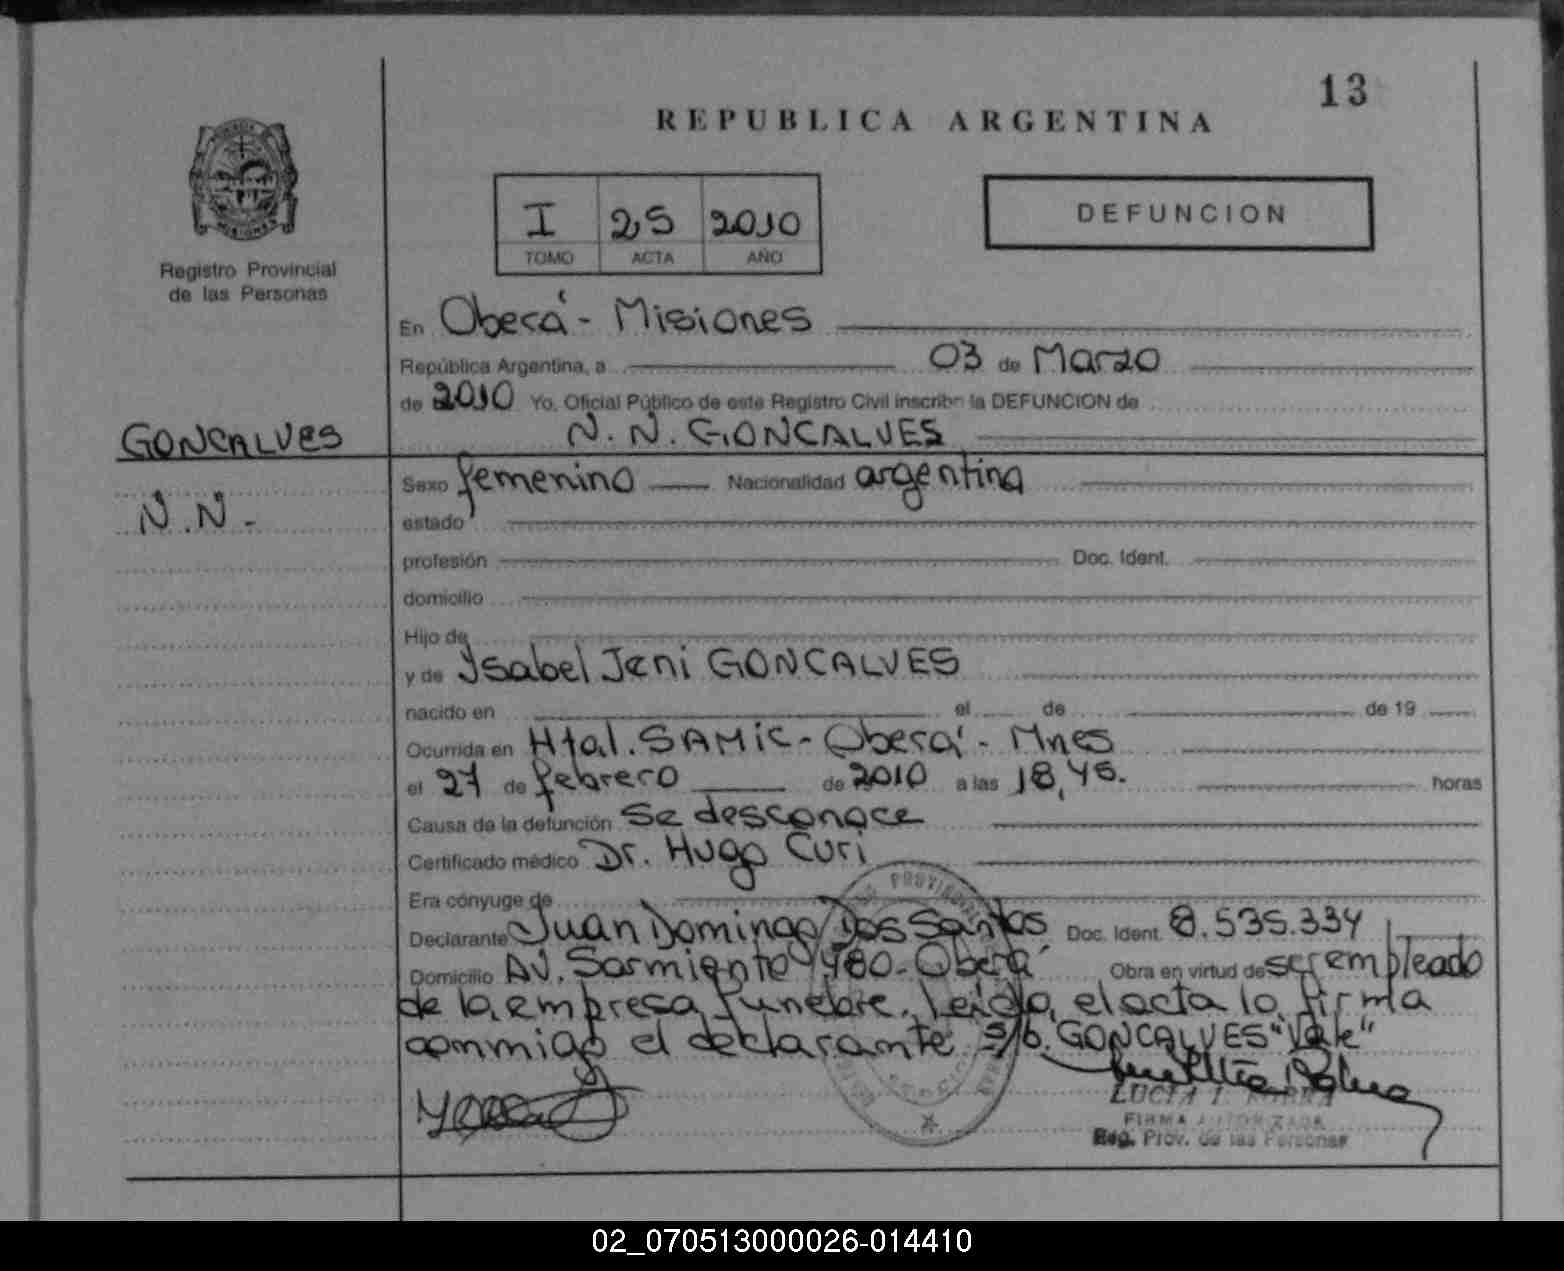 13
REPUBLICA ARGENTINA
I 25 2010
TOMO ACTA AÑO
DEFUNCION
Registro Provincial
de las Personas
En Oberá - Misiones
República Argentina, a 03 de Marzo
de 2010 Yo, Oficial Público de este Registro Civil inscribo la DEFUNCION de
GONCALVES
N. N. GONCALVES
Sexo femenino Nacionalidad argentina
N.N.-
estado
profesión Doc. Ident.
domicilio
Hijo de
y de Ysabel Jeni GONCALVES
nacido en el de de 19
Ocurrida en Htal. SAMIC - Oberá - Mnes
el 27 de febrero de 2010 a las 18,45. horas
Causa de la defunción Se desconoce
Certificado médico Dr. Hugo Curi
Era cónyuge de
Declarante Juan Domingo Dos Santos Doc. Ident. 8.535.334
Domicilio AV. Sarmiento 980 - Oberá Obra en virtud de ser empleado
de la empresa funebre. Leida el acta la firma
conmigo el declarante s/b. GONCALVES "Vale"
LUCIA I.
FIRMA AUTORIZADA
Reg. Prov. de las Personas
02_070513000026-014410